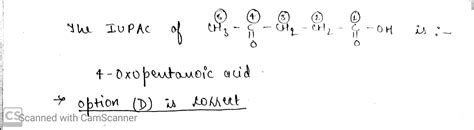 ⑤ ④ ③ ② ①
The IUPAC of CH₃ - C - CH₂ - CH₂ - C - OH is :-
O O
4-oxopentanoic acid
→ option (D) is correct
CS Scanned with CamScanner